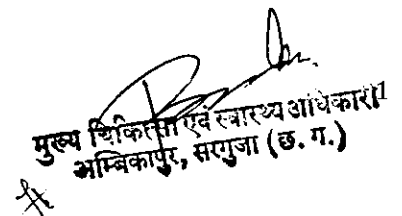 मुख्य चिकित्सा एवं स्वास्थ्य अधिकारी
अम्बिकापुर, सरगुजा (छ. ग.)